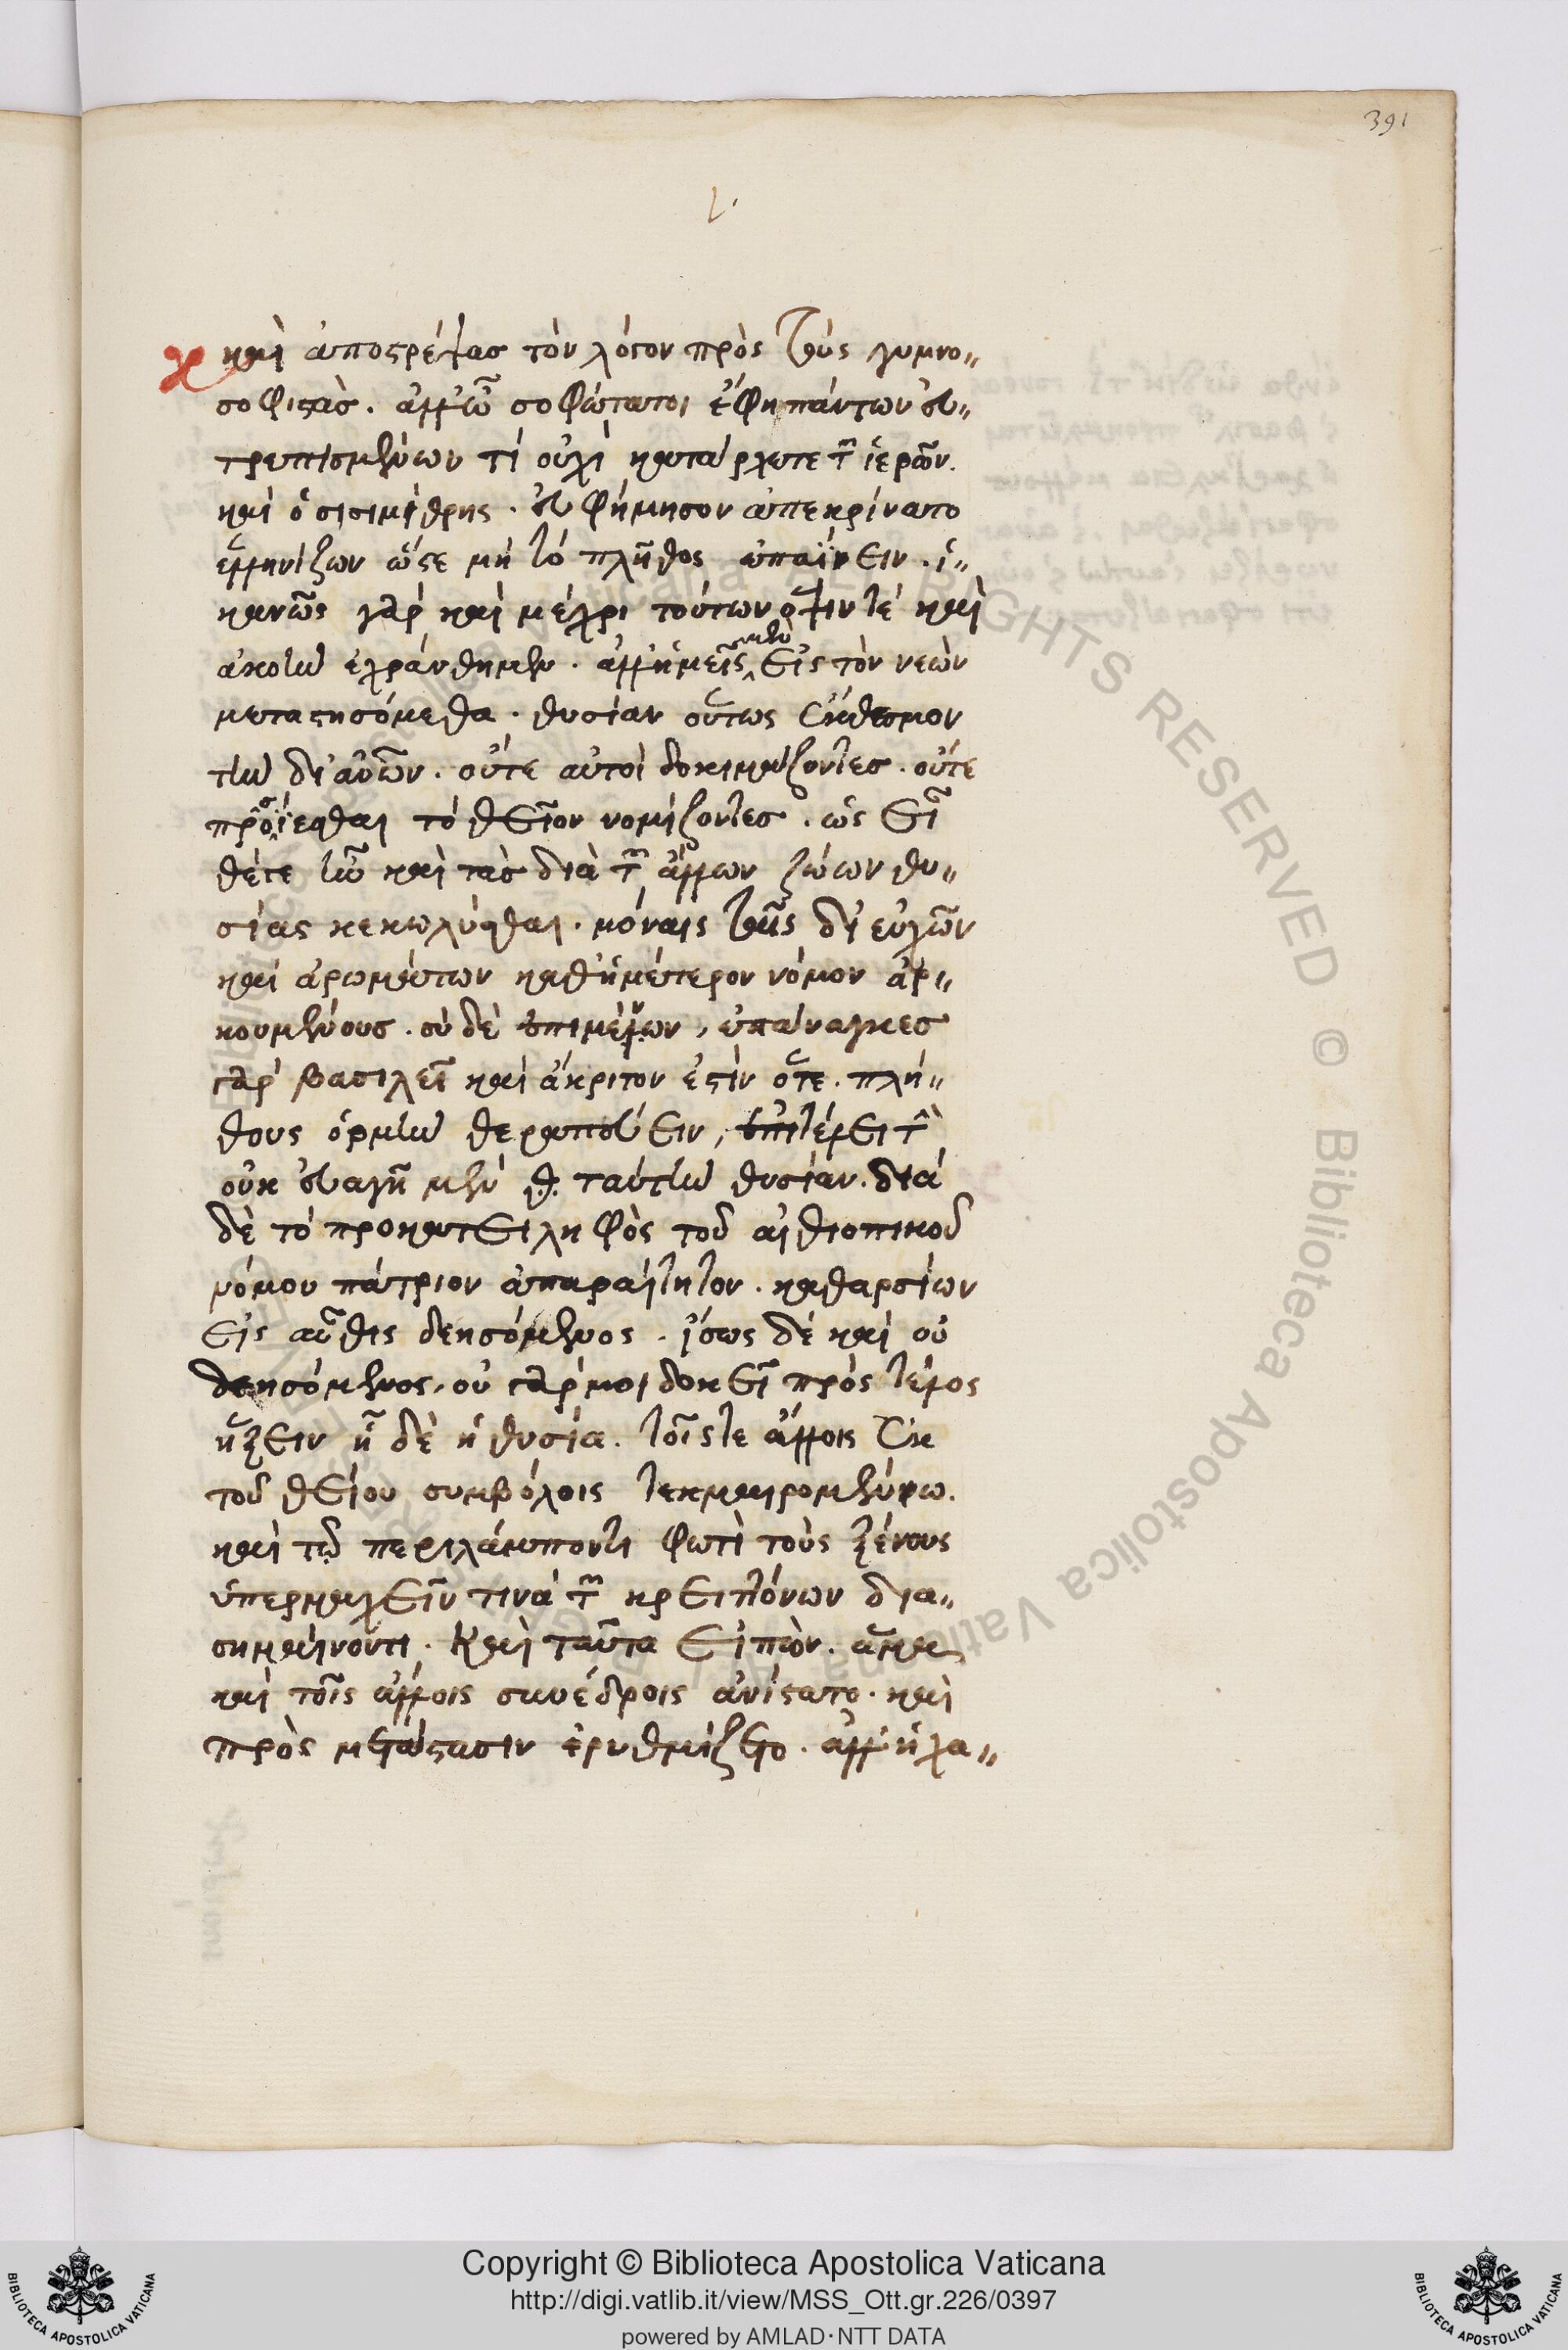 391
ι.
καὶ ἀποστρέψας τὸν λόγον πρὸς τοὺς γυμνο„
σοφιστὰς. ἀλλ' ὦ σοφώτατοι ἔφη πάντων εὐ„
τρεπισμένων τί οὐχὶ κατάρχετε τῶν ἱερῶν.
καὶ ὁ σισιμίθρης. εὐφήμησον ἀπεκρίνατο
ἑλληνίζων ὥστε μὴ τὸ πλῆθος ἐπαΐειν. ἱ„
κανῶς γὰρ καὶ μέχρι τούτων ὄψιν τὲ καὶ
ἀκοὴν ἐχράνθημεν. ἀλλ' ἡμεῖς μὲν εἰς τὸν νεὼν
μεταστησόμεθα. θυσίαν οὕτως ἔκθεσμον
τὴν δι' ἀνῶν. οὔτε αὐτοὶ δοκιμάζοντες. οὔτε
προσίεσθαι τὸ θεῖον νομίζοντες. ὡς εἴ
θέτε ἦν καὶ τὰς διὰ τῶν ἄλλων ζώων θυ„
σίας κεκωλύσθαι. μόναις ταῖς δι' εὐχῶν
καὶ ἀρωμάτων καθ' ἡμέτερον νόμον ἀρ„
κουμένους. σὺ δὲ ἐπιμένων, ἐπάναγκες
γὰρ βασιλεῖ καὶ ἄκριτον ἐστὶν ὅτε. πλή„
θους ὁρμὴν θεραπεύειν, ἐπιτέλει τὴν
οὐκ εὐαγῆ μὲν θ. ταύτην θυσίαν. διὰ
δὲ τὸ προκατειληφὸς τοῦ αἰθιοπικοῦ
νόμου πάτριον ἀπαραίτητον. καθαρσίων
εἰς αὖθις δεησόμενος. ἴσως δὲ καὶ οὐ
δεησόμενος, οὐ γάρ μοι δοκεῖ πρὸς τέλος
ἥξειν ἥ δὲ ἡ θυσία. τοῖς τε ἄλλοις ἐκ
τοῦ θείου συμβόλοις τεκμαιρομένῳ.
καὶ τῷ περιλάμποντι φωτὶ τοὺς ξένους
ὑπερμαχεῖν τινὰ τῶν κρειττόνων δια„
σημαίνοντι. Καὶ ταῦτα εἰπὼν. ἅμα
καὶ τοῖς ἄλλοις συνέδροις ἀνίστατο. καὶ
πρὸς μετάστασιν ἐρυθμίζετο. ἀλλ' ἡ χα„
Copyright © Biblioteca Apostolica Vaticana
http://digi.vatlib.it/view/MSS_Ott.gr.226/0397
powered by AMLAD·NTT DATA
BIBLIOTECA APOSTOLICA VATICANA
BIBLIOTECA APOSTOLICA VATICANA